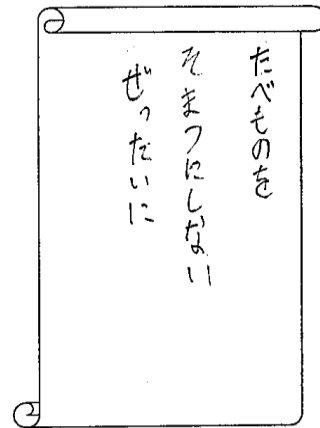 たべものを
そまつにしない
ぜったいに